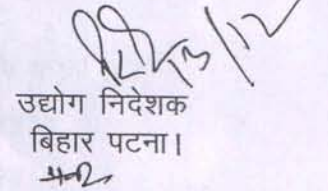 13/12
उद्योग निदेशक
बिहार पटना।